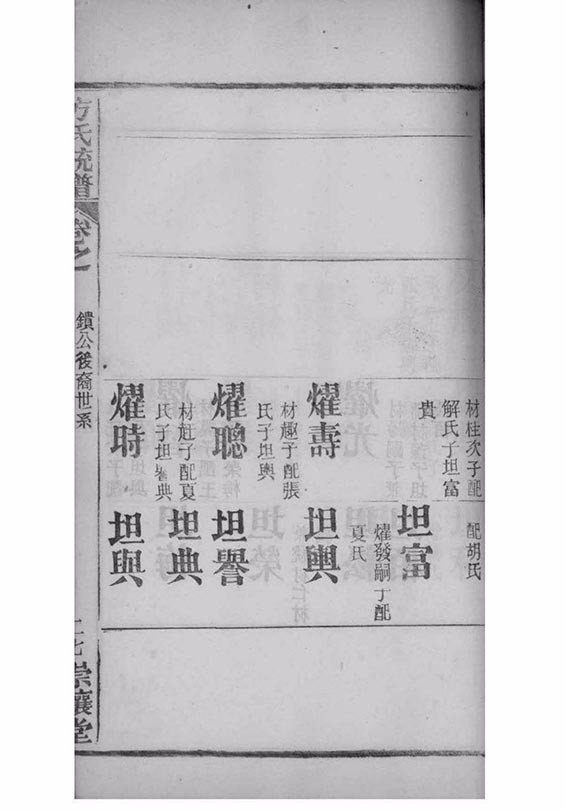 材柱次子配
解氏子坦富
貴
燿壽
材趣子配張
氏子坦輿
燿聰
材瓩子配夏
氏子坦譽典
燿時
配胡氏
坦富
燿發嗣丁配
夏氏
坦輿
坦譽
坦典
坦與
方氏統譜
卷之
鐀公後裔世系
崇讓堂